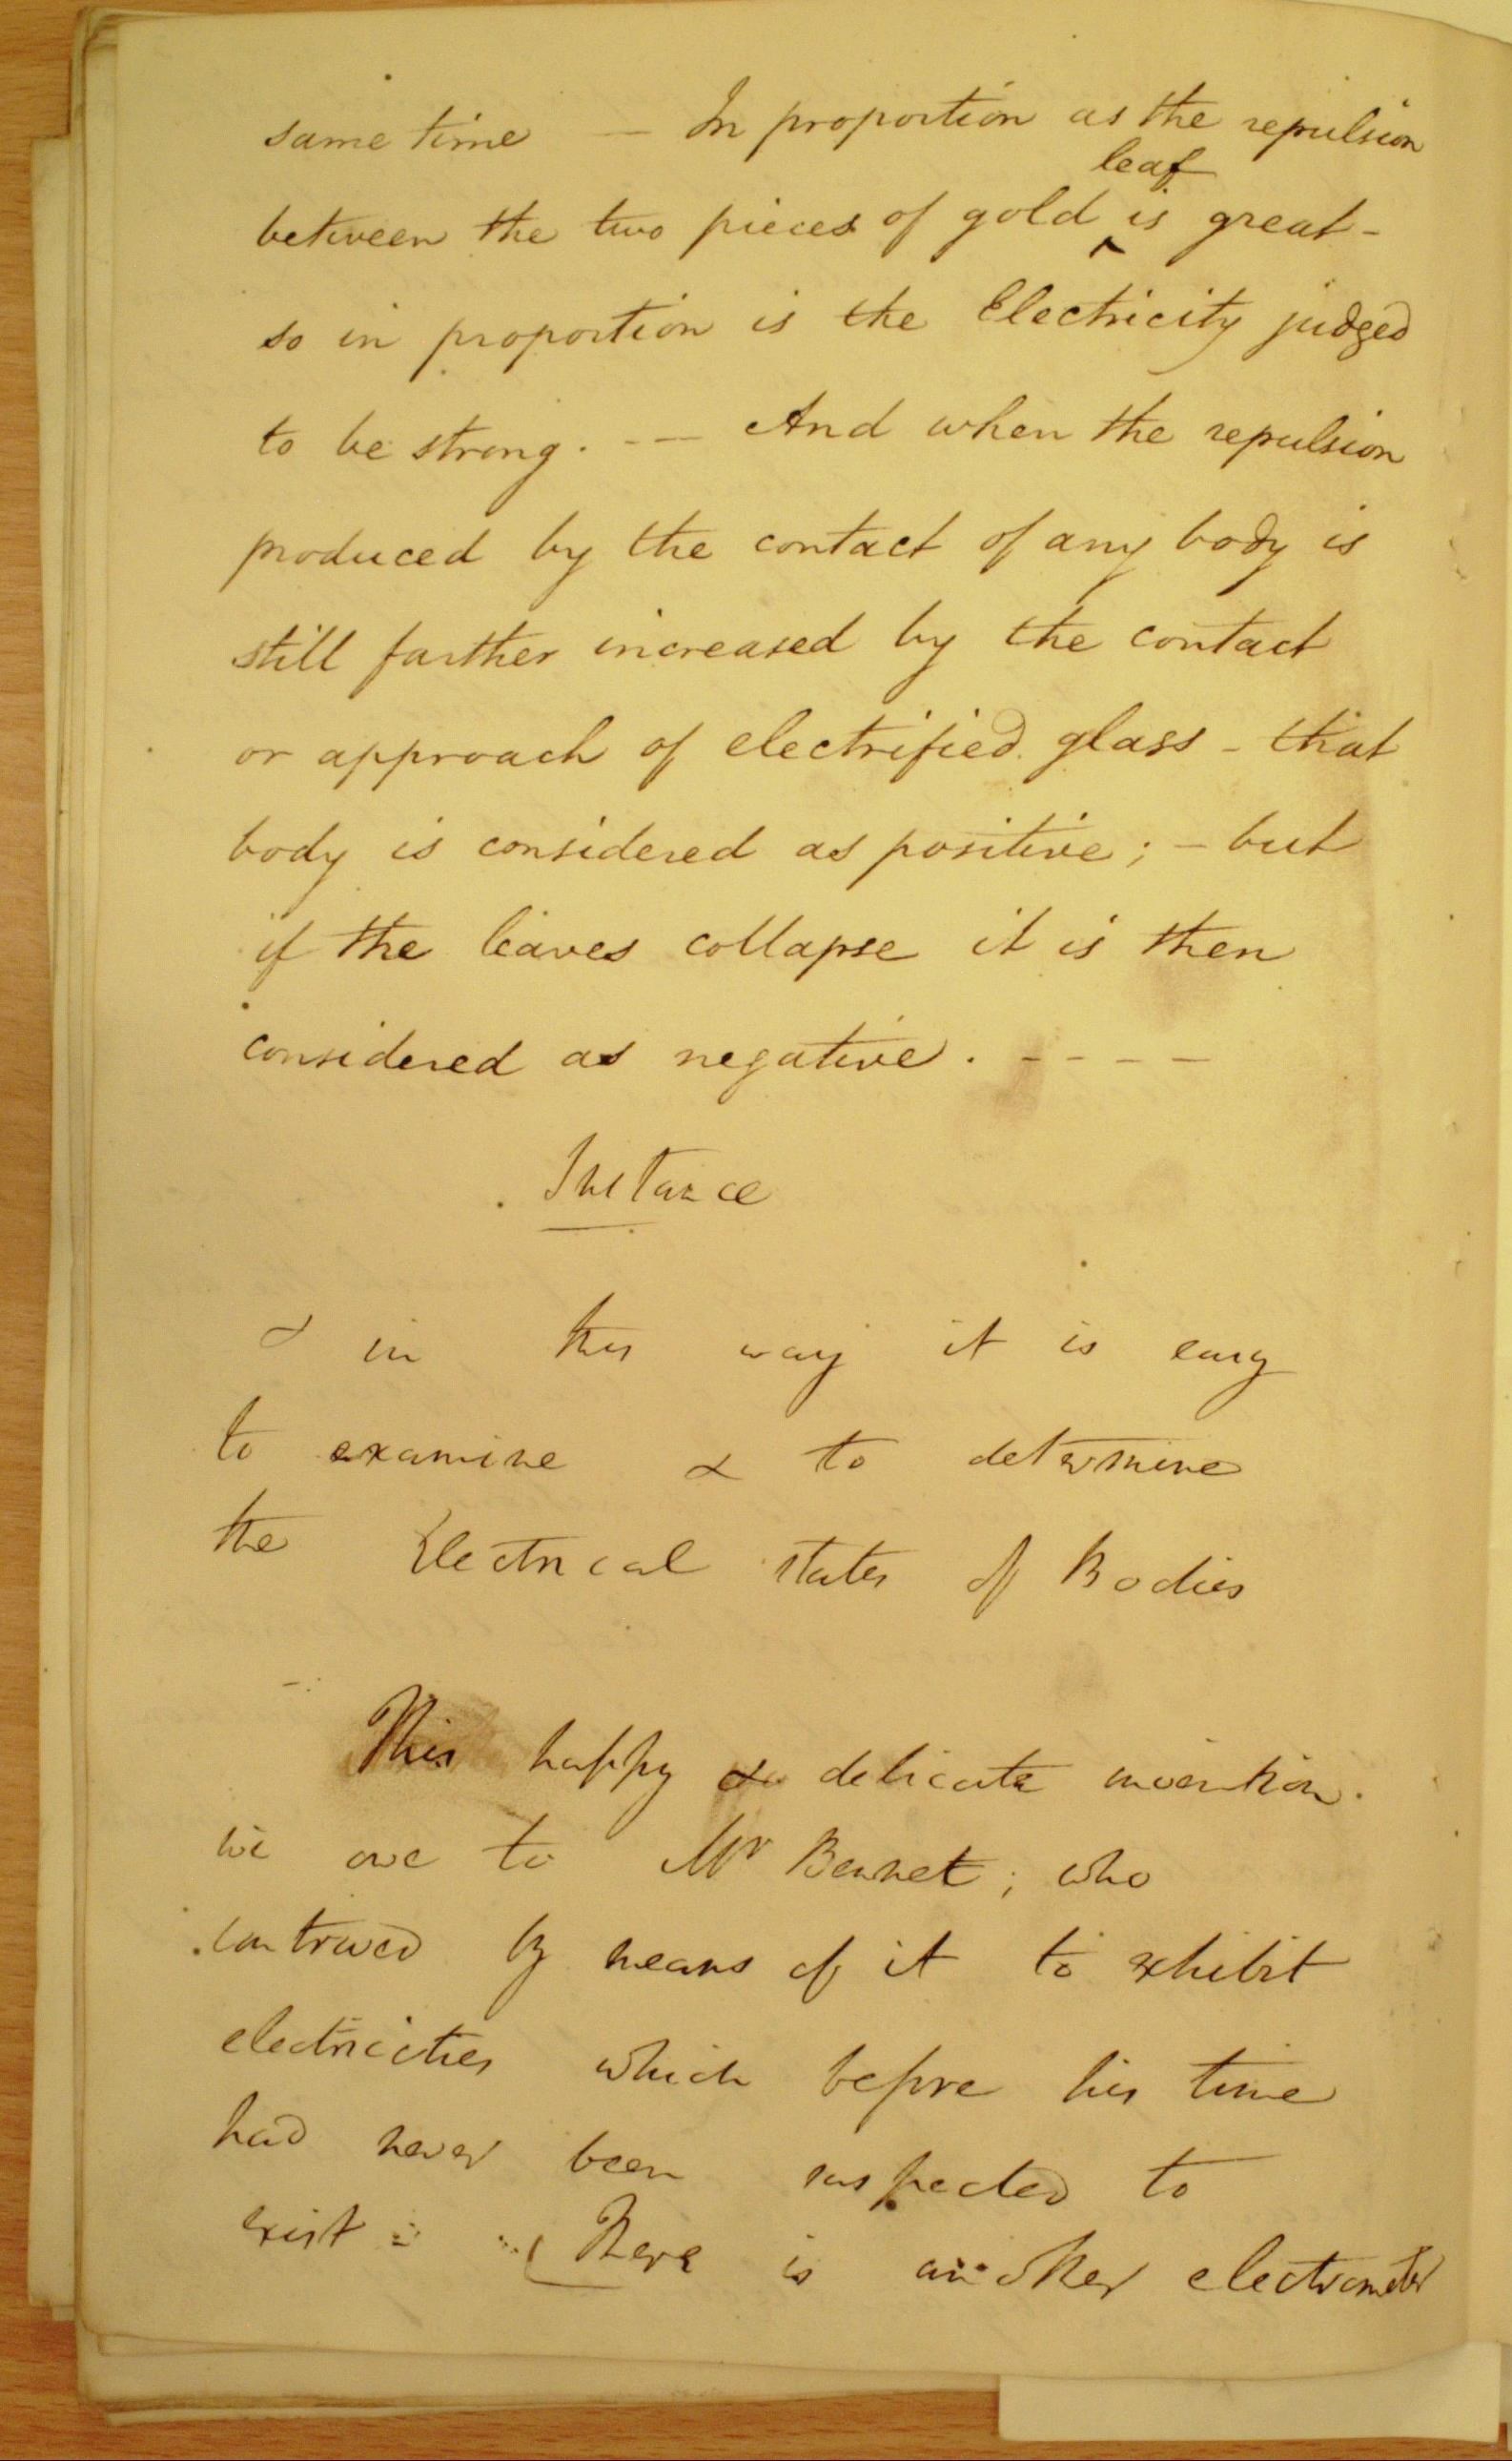 same time — In proportion as the repulsion
leaf
between the two pieces of gold ^ is great -
so in proportion is the Electricity judged
to be strong. -— And when the repulsion
produced by the contact of any body is
still farther increased by the contact
or approach of electrified glass - that
body is considered as positive; - but
if the leaves collapse it is then
considered as negative. - - - -
Instance
& in this way it is easy
to examine & to determine
the Electrical states of Bodies
This happy & delicate invention.
we owe to Mr Bennet; who
contrived by means of it to exhibit
electricities which before his time
had never been suspected to
exist :- There is another electrometer